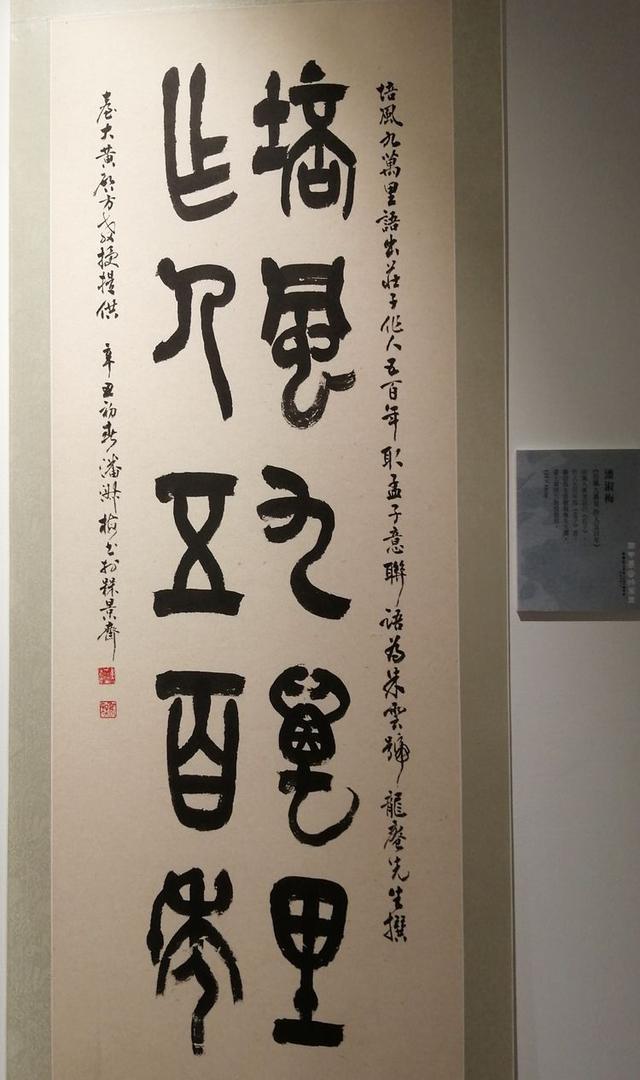 培風九萬里語出莊子作人五百年取孟子意聯語為朱雲號龍庵先生撰
培風九萬里
作人五百年
臺大黃啟方教授提供 辛丑初春潘淑梅書於景齋
潘淑梅